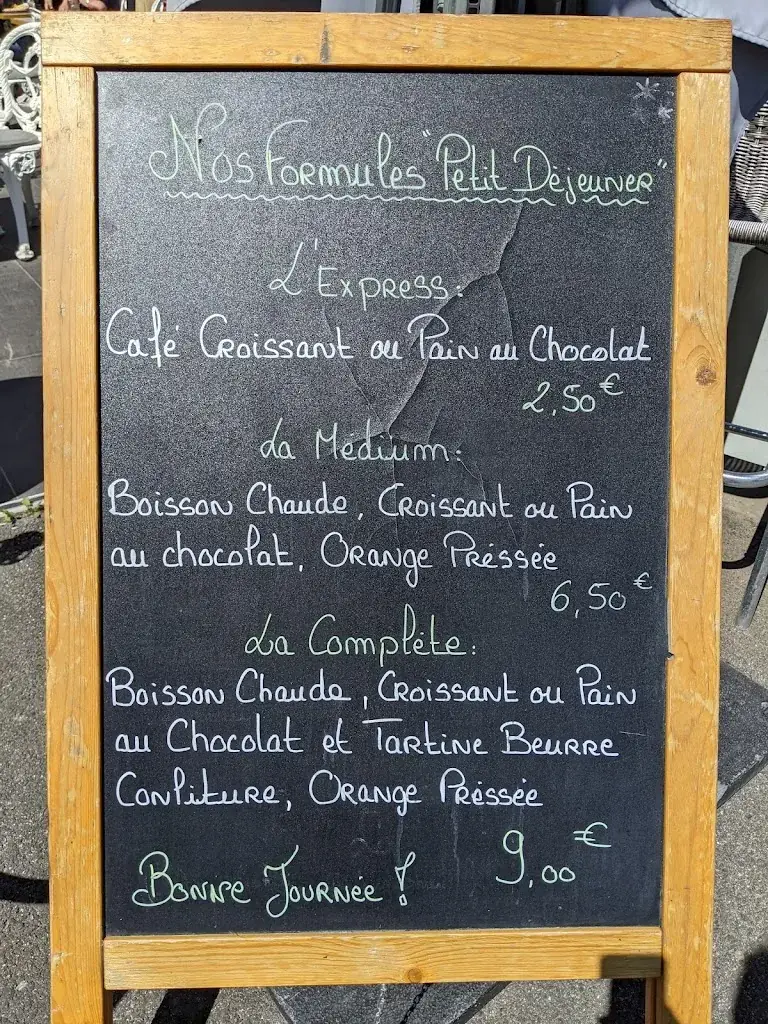 Nos Formules "Petit Déjeuner"
L'Express:
Café Croissant ou Pain au Chocolat
2,50€
La Médium:
Boisson Chaude, Croissant ou Pain
au chocolat, Orange Préssée
6,50€
La Complète:
Boisson Chaude, Croissant ou Pain
au Chocolat et Tartine Beurre
Confiture, Orange Préssée
9,00€
Bonne Journée !